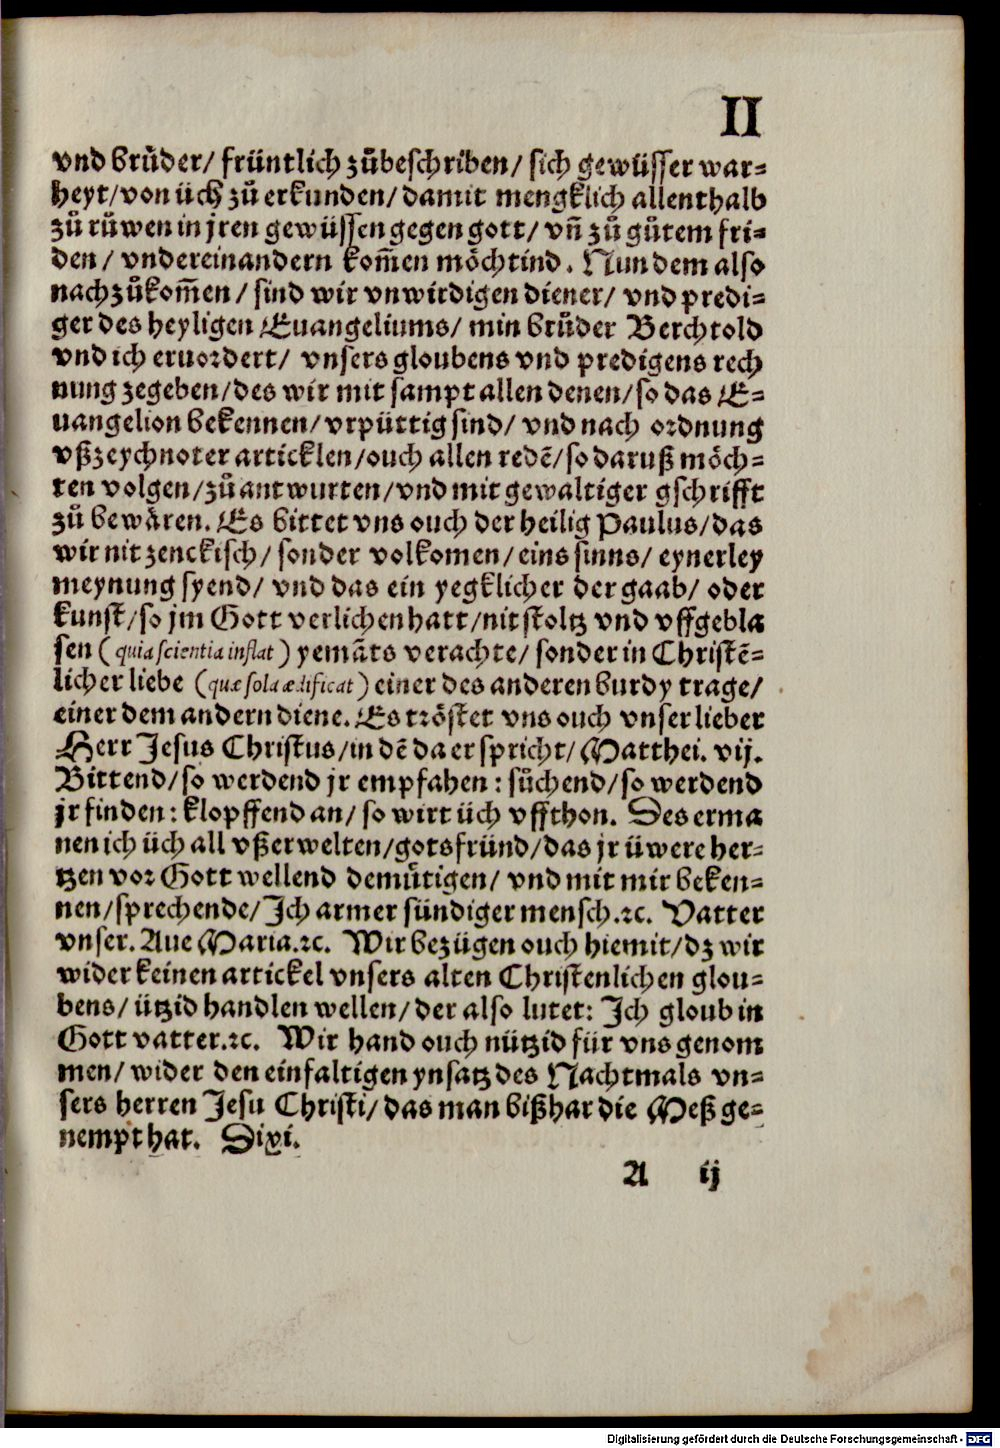 II
vnd bruͤder/ früntlich zuͦbeschriben/ sich gewüsser war⸗
heyt/ von üch zuͦ erkunden/ damit mengklich allenthalb
zuͦ ruͦwen in jren gewüssen gegen gott/ vn̄ zuͦ guͦtem fri⸗
den/ vndereinandern kom̄en moͤchtind. Nun dem also
nachzuͦkom̄en/ sind wir vnwirdigen diener/ vnd predi⸗
ger des heyligen Euangeliums/ min bruͤder Berchtold
vnd ich eruordert/ vnsers gloubens vnd predigens rech
nung zegeben/ des wir mit sampt allen denen/ so das E⸗
uangelion bekennen/ vrpüttig sind/ vnd nach ordnung
vßzeychnoter articklen/ ouch allen redē/ so daruß moͤch⸗
ten volgen/ zuͦ antwurten/ vnd mit gewaltiger gschrifft
zuͦ bewaͤren. Es bittet vns ouch der heilig Paulus/ das
wir nit zenckisch/ sonder volkomen/ eins sinns/ eynerley
meynung syend/ vnd das ein yegklicher der gaab/ oder
kunst/ so jm Gott verlichen hatt/ nit stoltz vnd vffgebla
sen (quia scientia inflat) yemāts verachte/ sonder in Christē⸗
licher liebe (quæ sola ædificat) einer des anderen burdy trage/
einer dem andern diene. Es troͤstet vns ouch vnser lieber
Herr Jesus Christus/ in dē da er spricht/ Matthei. vij.
Bittend/ so werdend jr empfahen: suͤchend/ so werdend
jr finden: klopffend an/ so wirt üch vffthon. Des erma
nen ich üch all vßerwelten/ gotsfründ/ das jr üwere her⸗
tzen vor Gott wellend demuͤtigen/ vnd mit mir beken⸗
nen/ sprechende/ Ich armer sündiger mensch.⁊c. Vatter
vnser. Aue Maria.⁊c. Wir bezügen ouch hiemit/ dz wir
wider keinen artickel vnsers alten Christenlichen glou⸗
bens/ ützid handlen wellen/ der also lutet: Ich gloub in
Gott vatter.⁊c. Wir hand ouch nützid für vns genom
men/ wider den einfaltigen ynsatz des Nachtmals vn⸗
sers herren Jesu Christi/ das man bißhar die Meß ge⸗
nempt hat. Dixi.
A ij
Digitalisierung gefördert durch die Deutsche Forschungsgemeinschaft - DFG